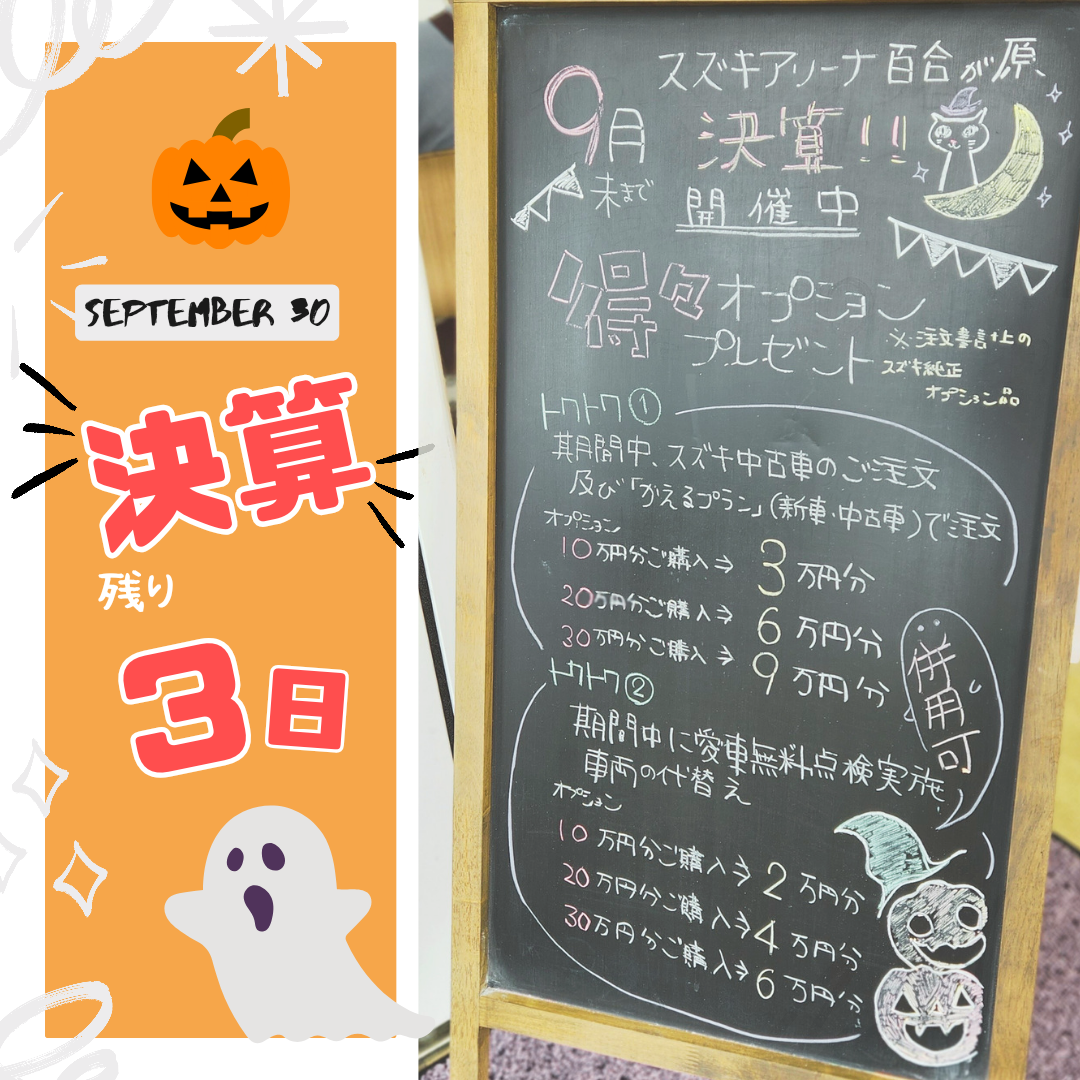 SEPTEMBER 30
決算
残り
3日
スズキアリーナ百合が原、
9月
末まで
決算!!
開催中
得々オプション
プレゼント
※注文書計上の
スズキ純正
オプション品
トクトク①
期間中、スズキ中古車のご注文
及び「かえるプラン」(新車・中古車)で注文
オプション
10万円分ご購入⇒3万円分
20万円分ご購入⇒6万円分
30万円分ご購入⇒9万円分
併用可
トクトク②
期間中に愛車無料点検実施
車両の代替え
オプション
10万円分ご購入⇒2万円分
20万円分ご購入⇒4万円分
30万円分ご購入⇒6万円分